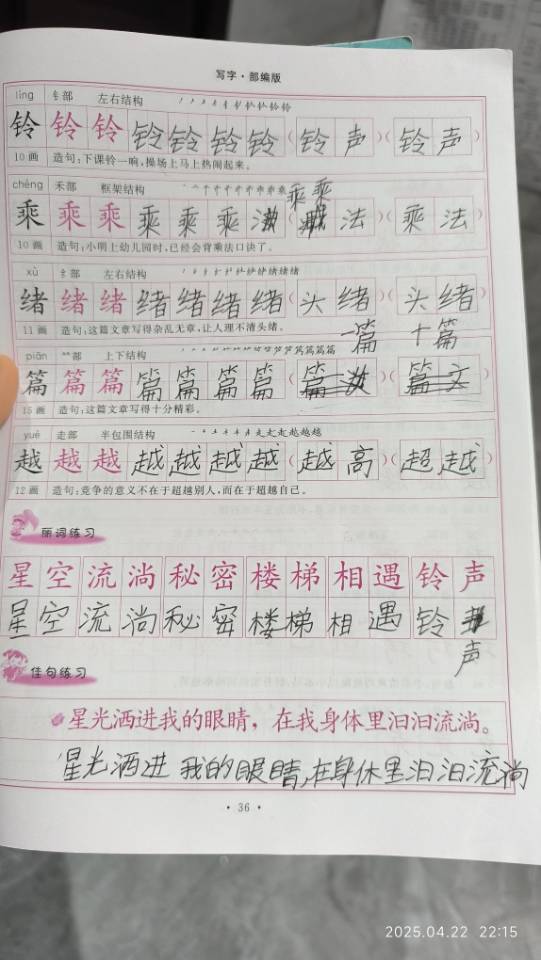 写字·部编版
líng 钅部 左右结构
铃 铃 铃 铃 铃 铃 铃 (铃 声) (铃 声)
10画 造句:下课铃一响,操场上马上热闹起来。
chéng 禾部 框架结构
乘 乘
乘 乘 乘 乘 乘 乘 法) (乘 法)
10画 造句:小明上幼儿园时,已经会背乘法口诀了。
xù 纟部 左右结构
绪 绪 绪 绪 绪 绪 绪 (头 绪) (头 绪)
11画 造句:这篇文章写得杂乱无章,让人理不清头绪。
一篇 十篇
piān ⺮部 上下结构
篇 篇 篇 篇 篇 篇 篇 (篇 (篇 文)
15画 造句:这篇文章写得十分精彩。
yuè 走部 半包围结构
越 越 越 越 越 越 越 (越 高) (超 越)
12画 造句:竞争的意义不在于超越别人,而在于超越自己。
丽词练习
星空 流淌 秘密 楼梯 相遇 铃声
星空 流淌 秘密 楼梯 相遇 铃
声
佳句练习
星光洒进我的眼睛,在我身体里汩汩流淌。
星光洒进我的眼睛,在身休里汩汩流淌
·36·
2025.04.22 22:15